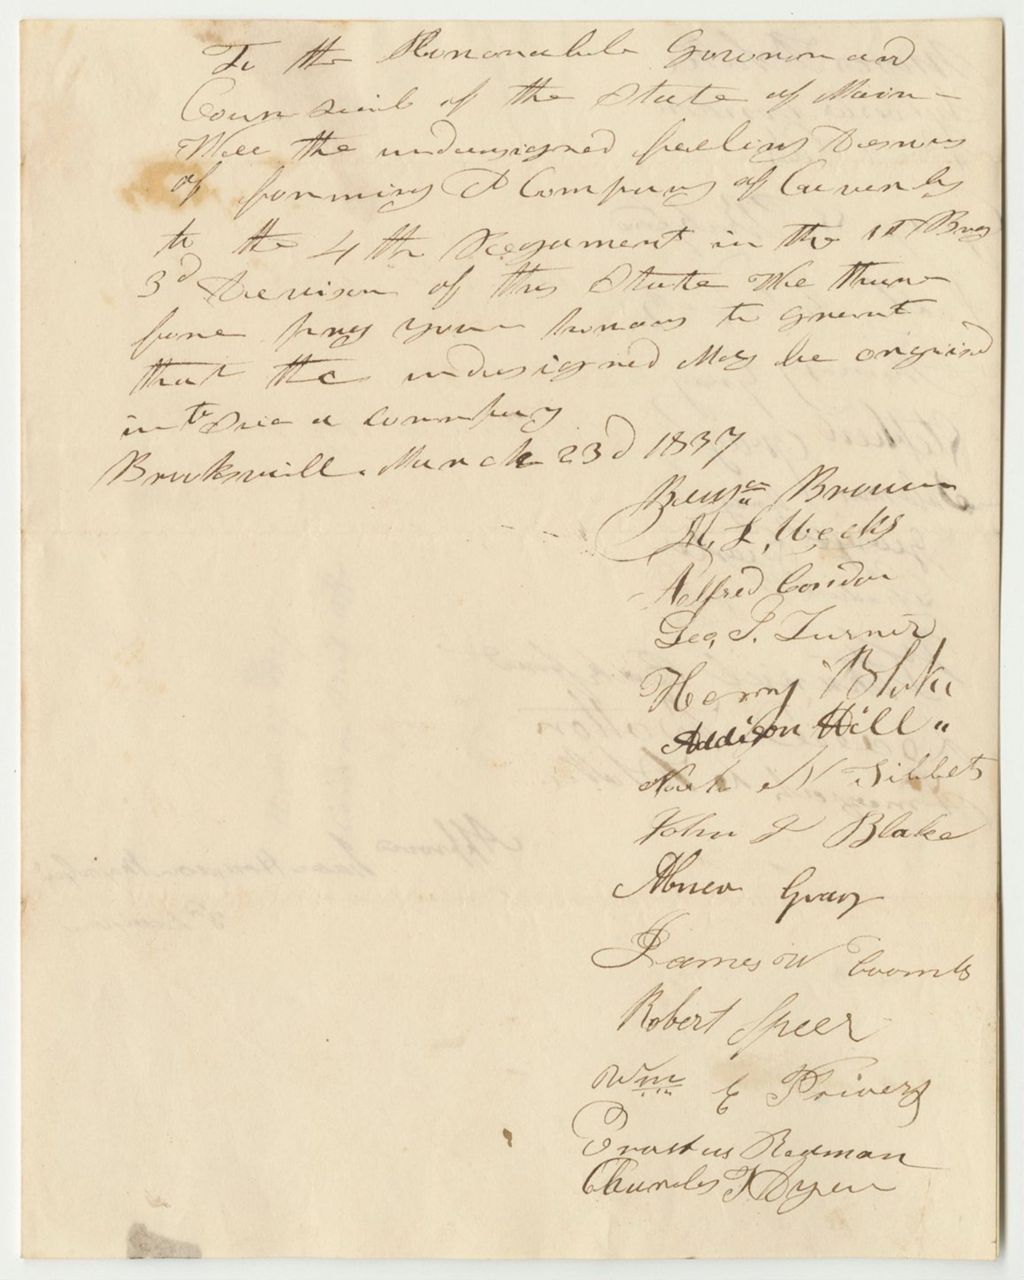 To the Honorable Govenor and
Counsieil of the State of Main
Wee the undersigned feeling Desirus
of forming A Company of Caverely
to the 4th Regament in the 1st Brig
3d Devision of this State We there
fore pray your honors to grant
that the undersigned May be orgnised
into Sic a Company
Brooksvill. March 23d 1837
Benjn Brown
Alfred Condon
Geo, Turner
Henry Blake
Addison Hill "
Noah N Tibbets
John Blake
Abner Gray
James W Coombs
Robert Speer
Wm
Erastus Redman
Charles Dyer